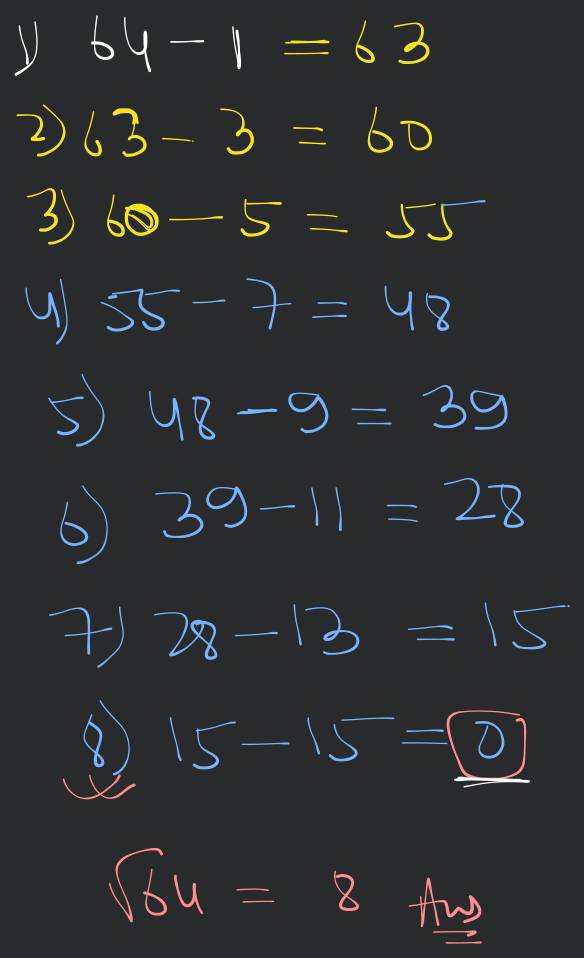 1) 64 - 1 = 63
2) 63 - 3 = 60
3) 60 - 5 = 55
4) 55 - 7 = 48
5) 48 - 9 = 39
6) 39 - 11 = 28
7) 28 - 13 = 15
8) 15 - 15 = 0
√64 = 8 Ans